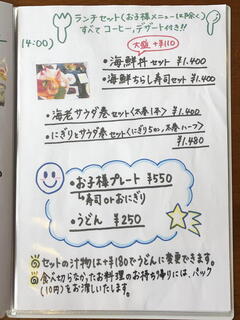 ランチセット(お子様メニューは除く)
すべてコーヒー、デザート付き!!
14:00)
大盛 +¥110
・海鮮丼セット ¥1.400
・海鮮ちらし寿司セット ¥1.400
・海老サラダ巻セット<太巻1本> ¥1.400
・にぎりとサラダ巻セット<にぎり5カン,太巻ハーフ>
¥1.480
・お子様プレート ¥550
↳寿司orおにぎり
・うどん ¥250
セットの汁物は+¥180でうどんに変更できます。
食べ切らなかったお料理のお持ち帰りには、パック
(10円)をお渡しいたします。